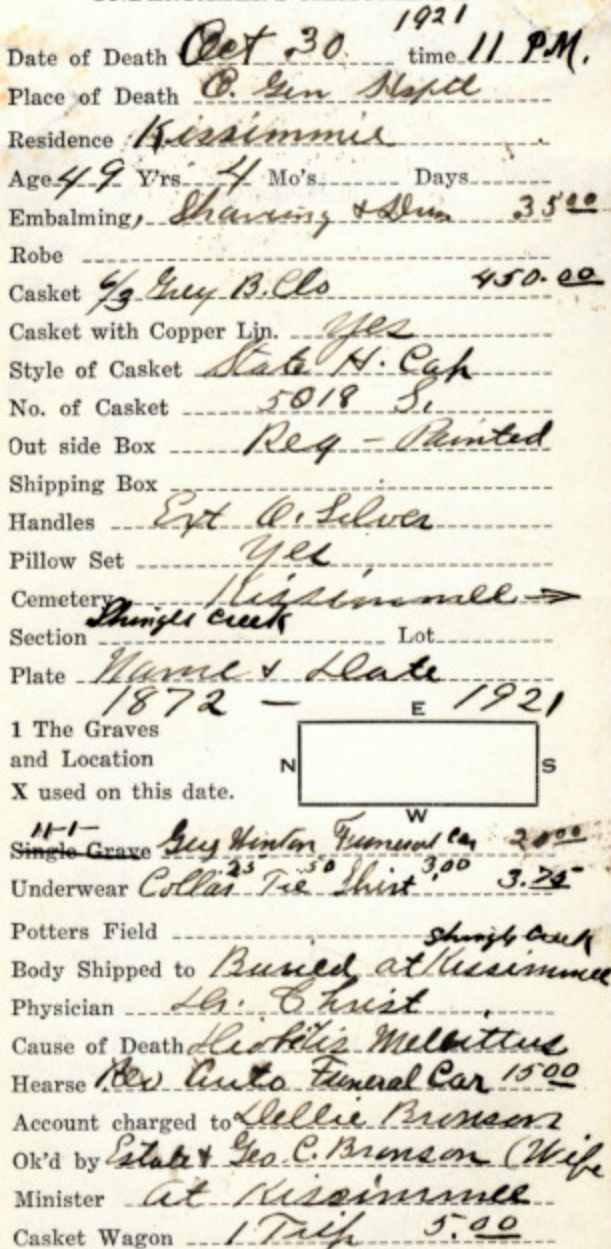 1921
Date of Death Oct 30 time 11 P.M.
Place of Death O. Gen Hsptl
Residence Kissimmie
Age 49 Y'rs 4 Mo's Days
Embalming, Shaving & 35 00
Robe
Casket 6/3 Grey B. Clo 450.00
Casket with Copper Lin. Yes
Style of Casket State H. Cap
No. of Casket 5018 S.
Out side Box Reg - Painted
Shipping Box
Handles Ext O. Silver
Pillow Set Yes
Cemetery Kissimmee →
Section Shingle Creek Lot
Plate Name & Date
1872 - 1921
1 The Graves
and Location
X used on this date.
E
N S
W
11-1-
Single Grave Guy Hinton Funeral Car 20 00
Underwear Collar 25 Tie 50 Shirt 3,00 3.75
Potters Field
Shingle Creek
Body Shipped to Buried at Kissimmee
Physician Dr. Christ
Cause of Death Mellittus
Hearse Rev Auto Funeral Car 15 00
Account charged to Dellie Bronson
Ok'd by Estate & Geo C. Bronson (Wife
Minister at Kissimmee
Casket Wagon 1 Trip 5.00